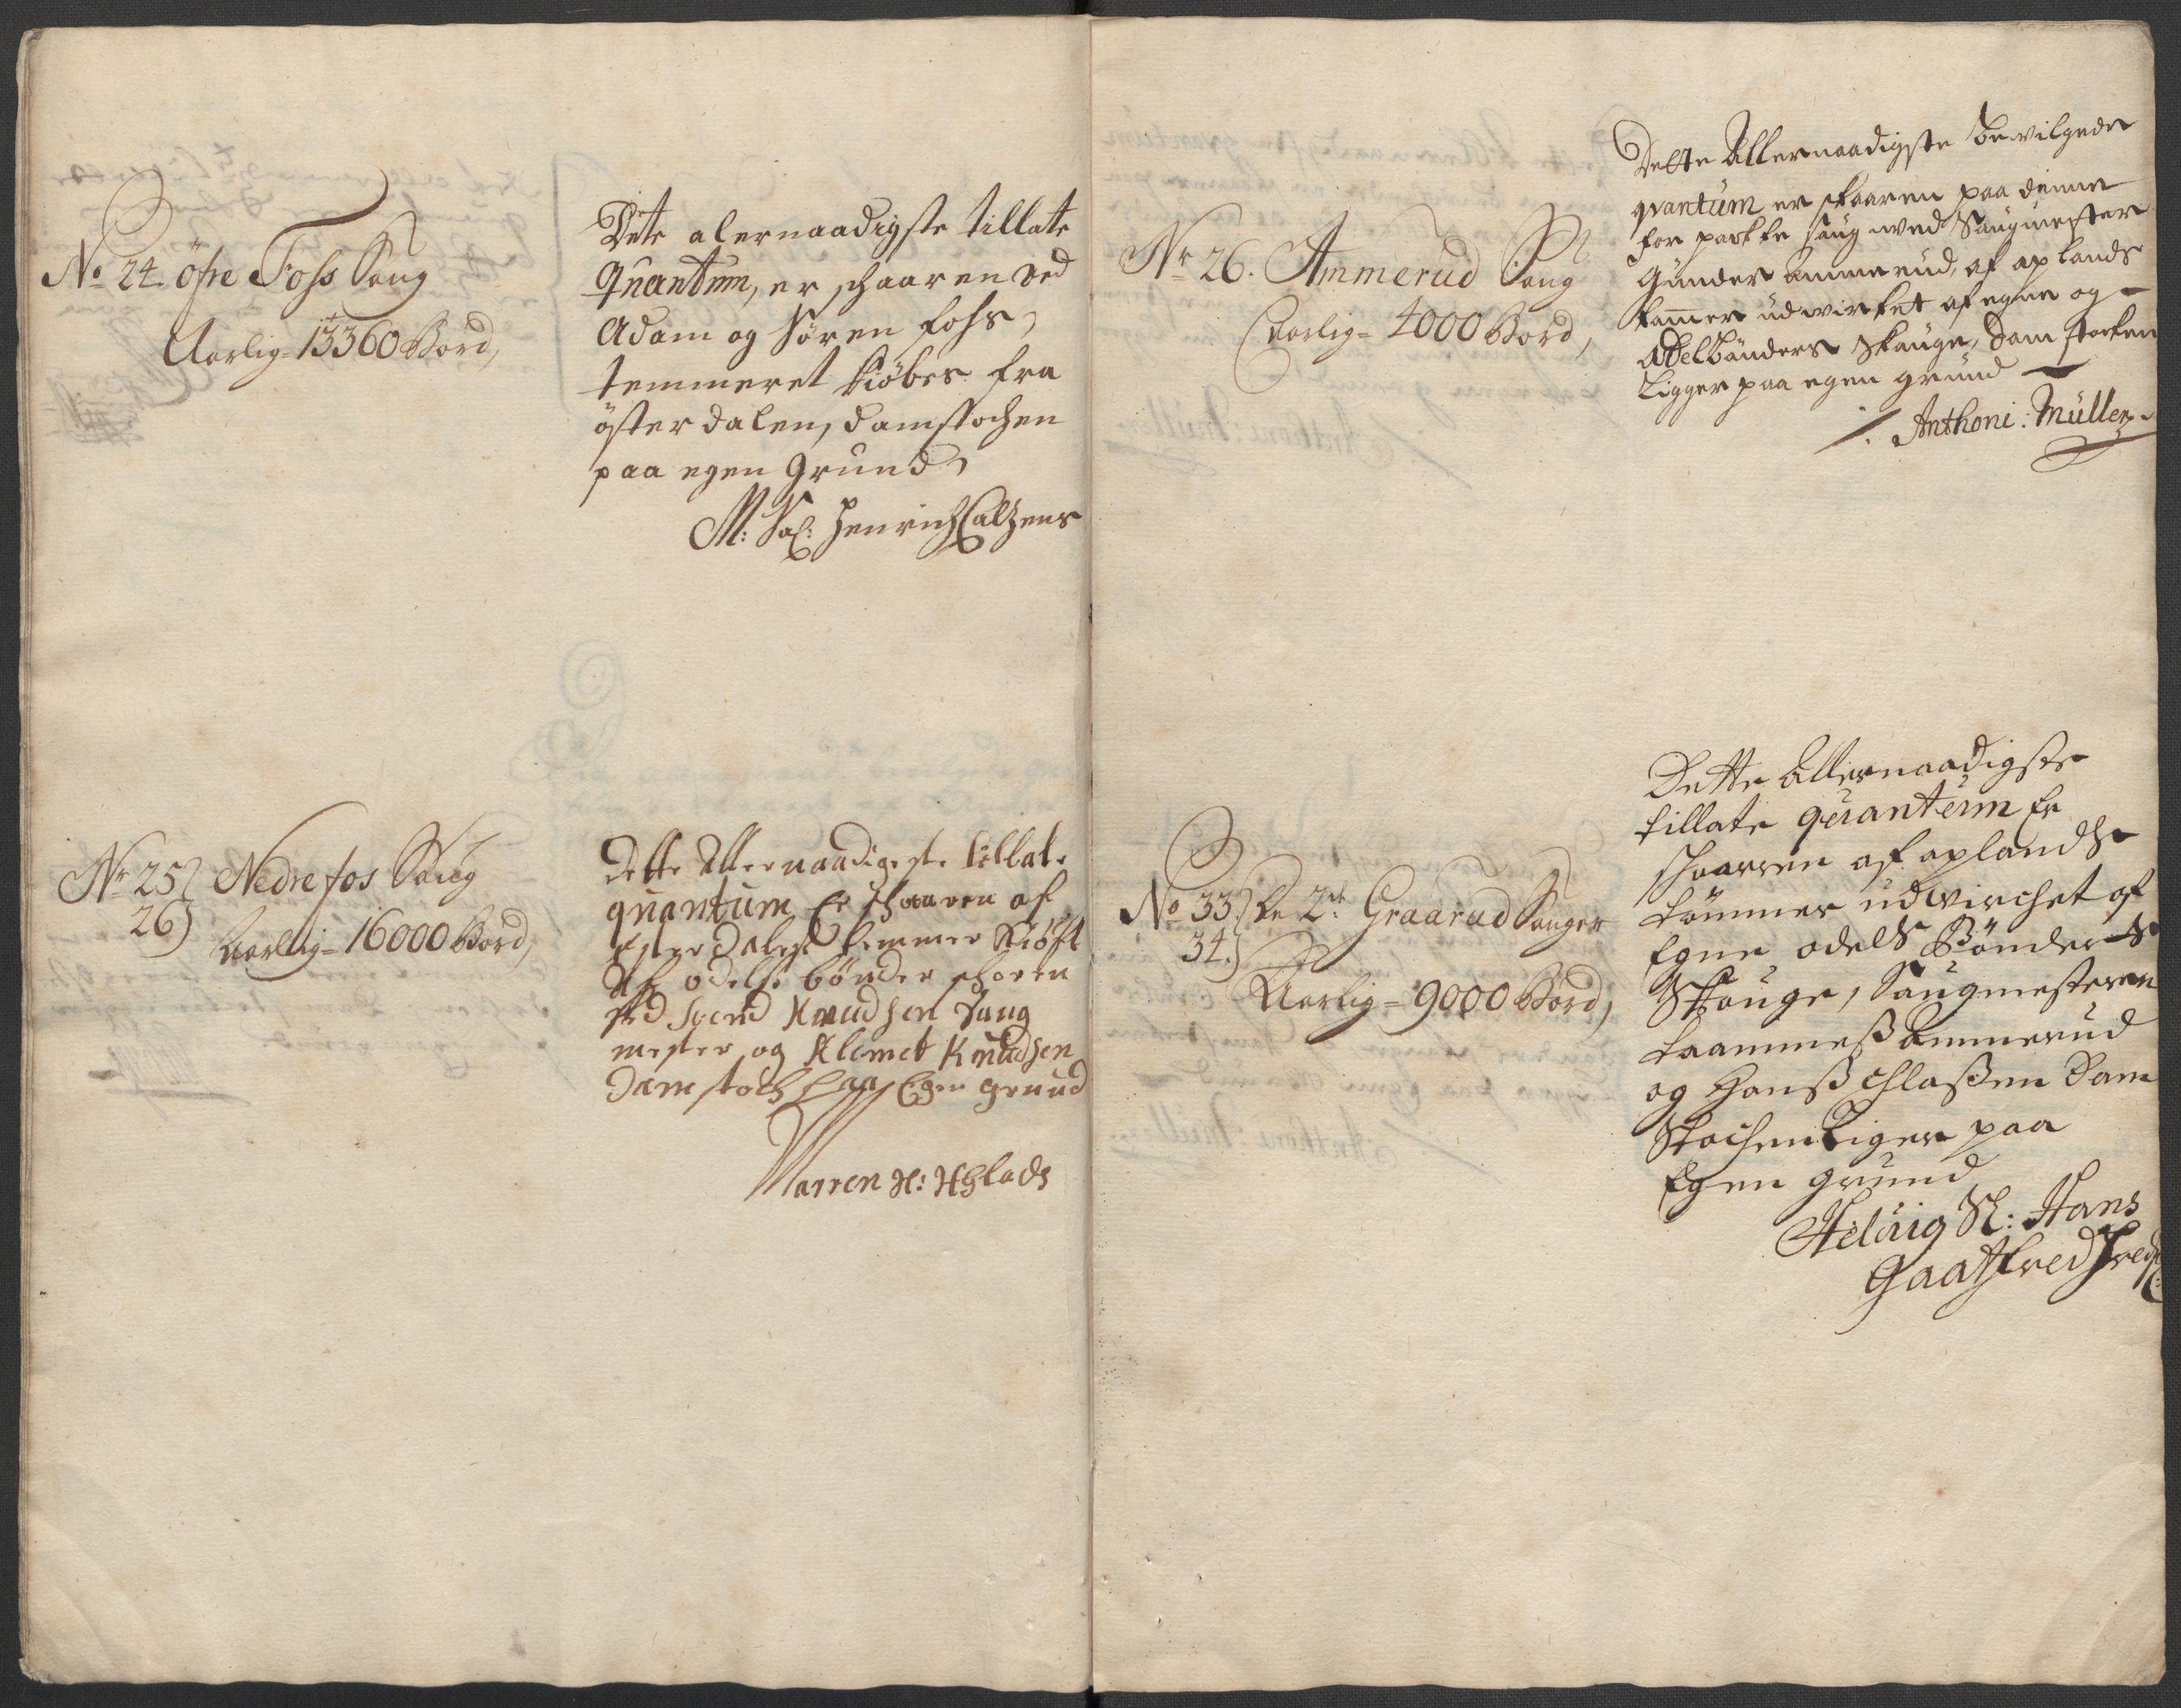 No 24. öfre Foss Saug
Aarlig = 13360 Bord,
Dete alernaadigste tillate
Quantum, er schaaren ved
Adam og Sören fohs,
temmeret kiöbes fra
öster dalen, damstochen
paa egen Grund,
M: Sal: Henrich
Nr 25 Nedre fos Saug
26)
Aarlig = 16000 Bord,
Dette Allernaadigeste tillate
quantum Er schaaren af
temmer Kiöft
Af odelse bönder schoren
ved Svend Knudsen Saug
mester og Klemet Knudsen
Damstoch paa Egen grund
Marren Sl:
Nr 26. Ammerud Saug
Aarlig = 4000 Bord,
Dette Allernaadigste Bevilgede
qvantum er skaaren paa denne
for packte saug med Saugmester
Gunder Ammerud, af aplands
tammer udwirket af egne og
Odelbönders Skauge, Dam stocken
Ligger paa egen grund
/. Anthoni: Müller
No 33) De 2de Graarud Sauger
34.)
Aarlig = 9000 Bord,
Dette Allernaadigste
tillate quantum Er
schaaren af aplandse
tömmer udvirchet af
Egne odels Bönders
Skouge, Saugmesteren
Ammerud
og Hanss Dam
Stochen Liger paa
Egen grund
Helvig Sl: Hans